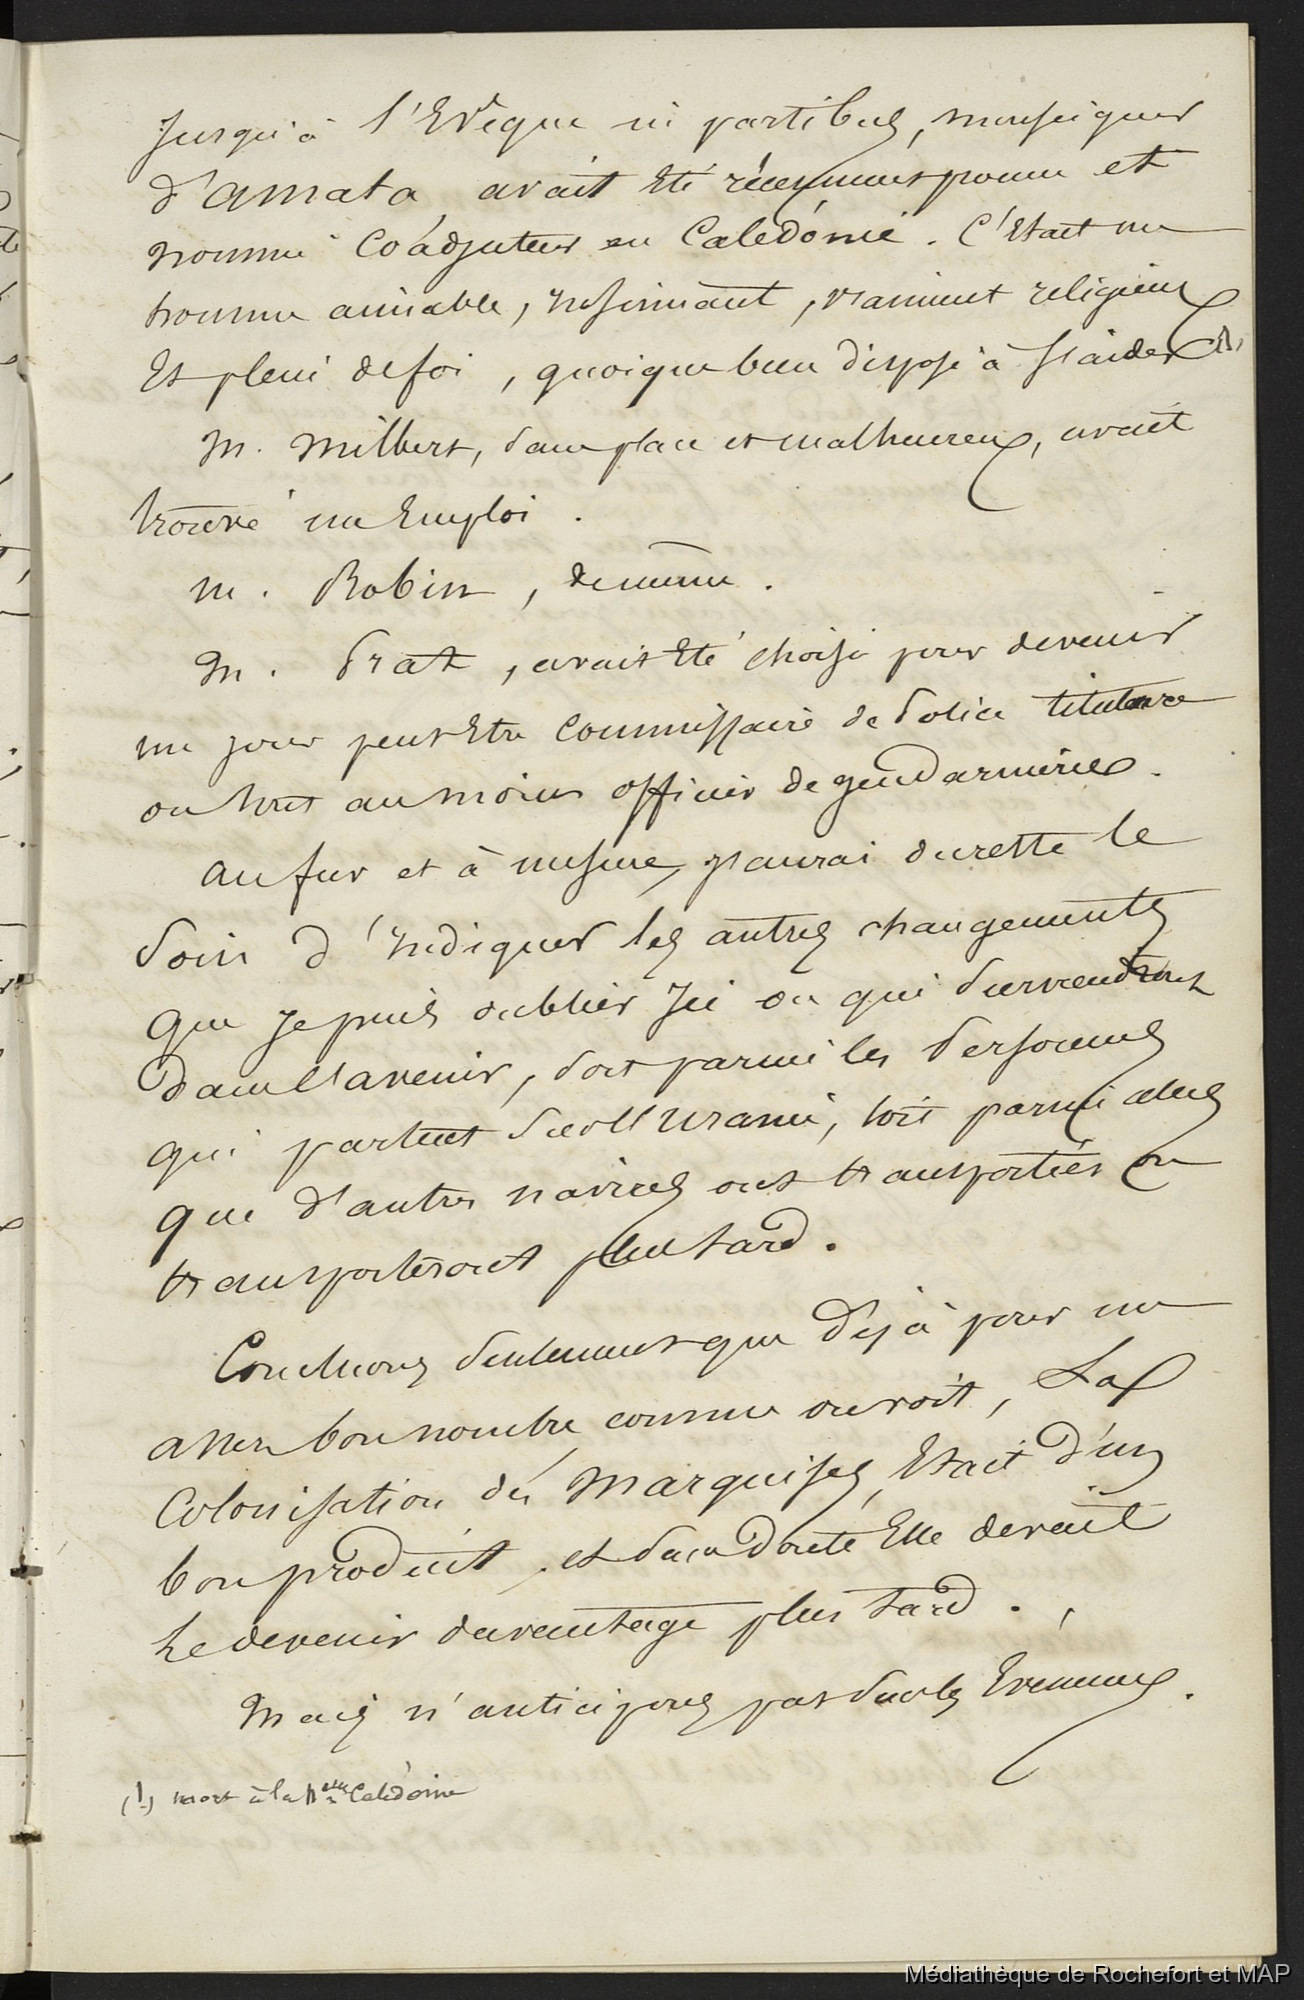 Jusqu'à l'Evêque in partibus, monseigneur
d'amata avait été récemment promu et
nommé Coadjuteur en Calédonie. C'était un
homme aimable, insinuant, vraiment religieux
Et plein de foi, quoique bien disposé à s'aider (1)
M. Milbert, sans place et malheureux, avait
trouvé un Emploi.
M. Robin, de même.
M. Prat, avait été choisi pour devenir
un jour peut Etre Commissaire de Police titulaire
ou tout au moins officier de gendarmerie.
Au fur et à mesure, j'aurai du reste le
Soin d'indiquer les autres changements
que je puis oublier Ici ou qui surviendront
Dans l'avenir, soit parmi les Personnes
qui partent sur l'Uranie, soit parmi celles
que d'autres navires ont transportées ou
transporteront plus tard.
Concluons seulement que Déjà pour un
assez bon nombre comme on voit, La
Colonisation des Marquises, Etait d'un
bon produit, et sans Doute Elle devait
le devenir davantage plus tard.
Mais n'anticipons pas sur les Evénements.
(1) mort à la Nelle Calédonie
Médiathèque de Rochefort et MAP